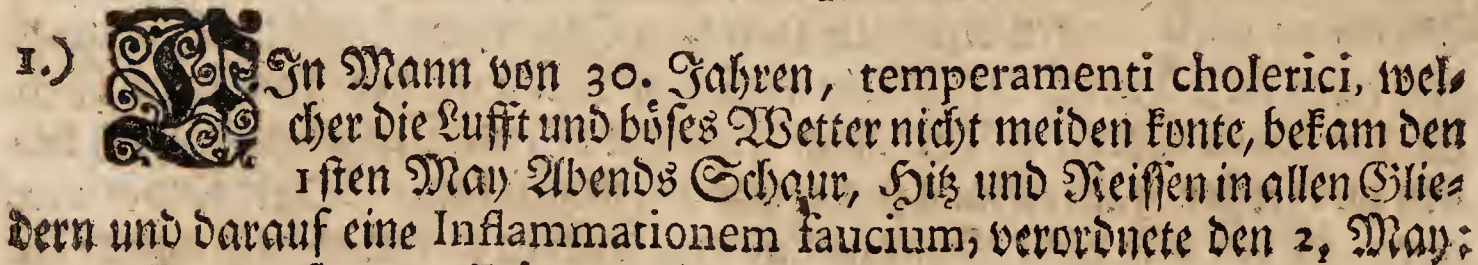 1.) EIn Mann von 30. Jahren, temperamenti cholerici, wel-
cher die Lufft und böses Wetter nicht meiden konte, bekam den
1sten May Abends Schaur, Hitz und Reissen in allen Glie-
dern und darauf eine Inflammationem faucium, verordnete den 2, May: